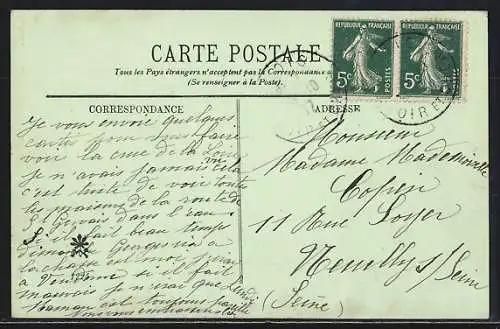 RÉPUBLIQUE FRANÇAISE
RÉPUBLIQUE FRANÇAISE
5c
POSTES
5c
POSTES
CARTE POSTALE
Tous les Pays étrangers n'acceptent pas la Correspondance
(Se renseigner à la Poste).
CORRESPONDANCE
ADRESSE
Je vous envoie quelques
cartes pour vous faire
voir la crue de la Loire
je n'avais jamais vu cela
c'est triste de voir toutes
les maisons de la route de
St Gervais dans l'eau.
S'il fait beau temps
dimanche Georges ira à
la chasse
à Vendôme si il fait
mauvais je n'irai que lundi
Maman est toujours
Monsieur
Madame Mademoiselle
Copin
11 Rue Soyer
Neuilly s/ Seine
(Seine)